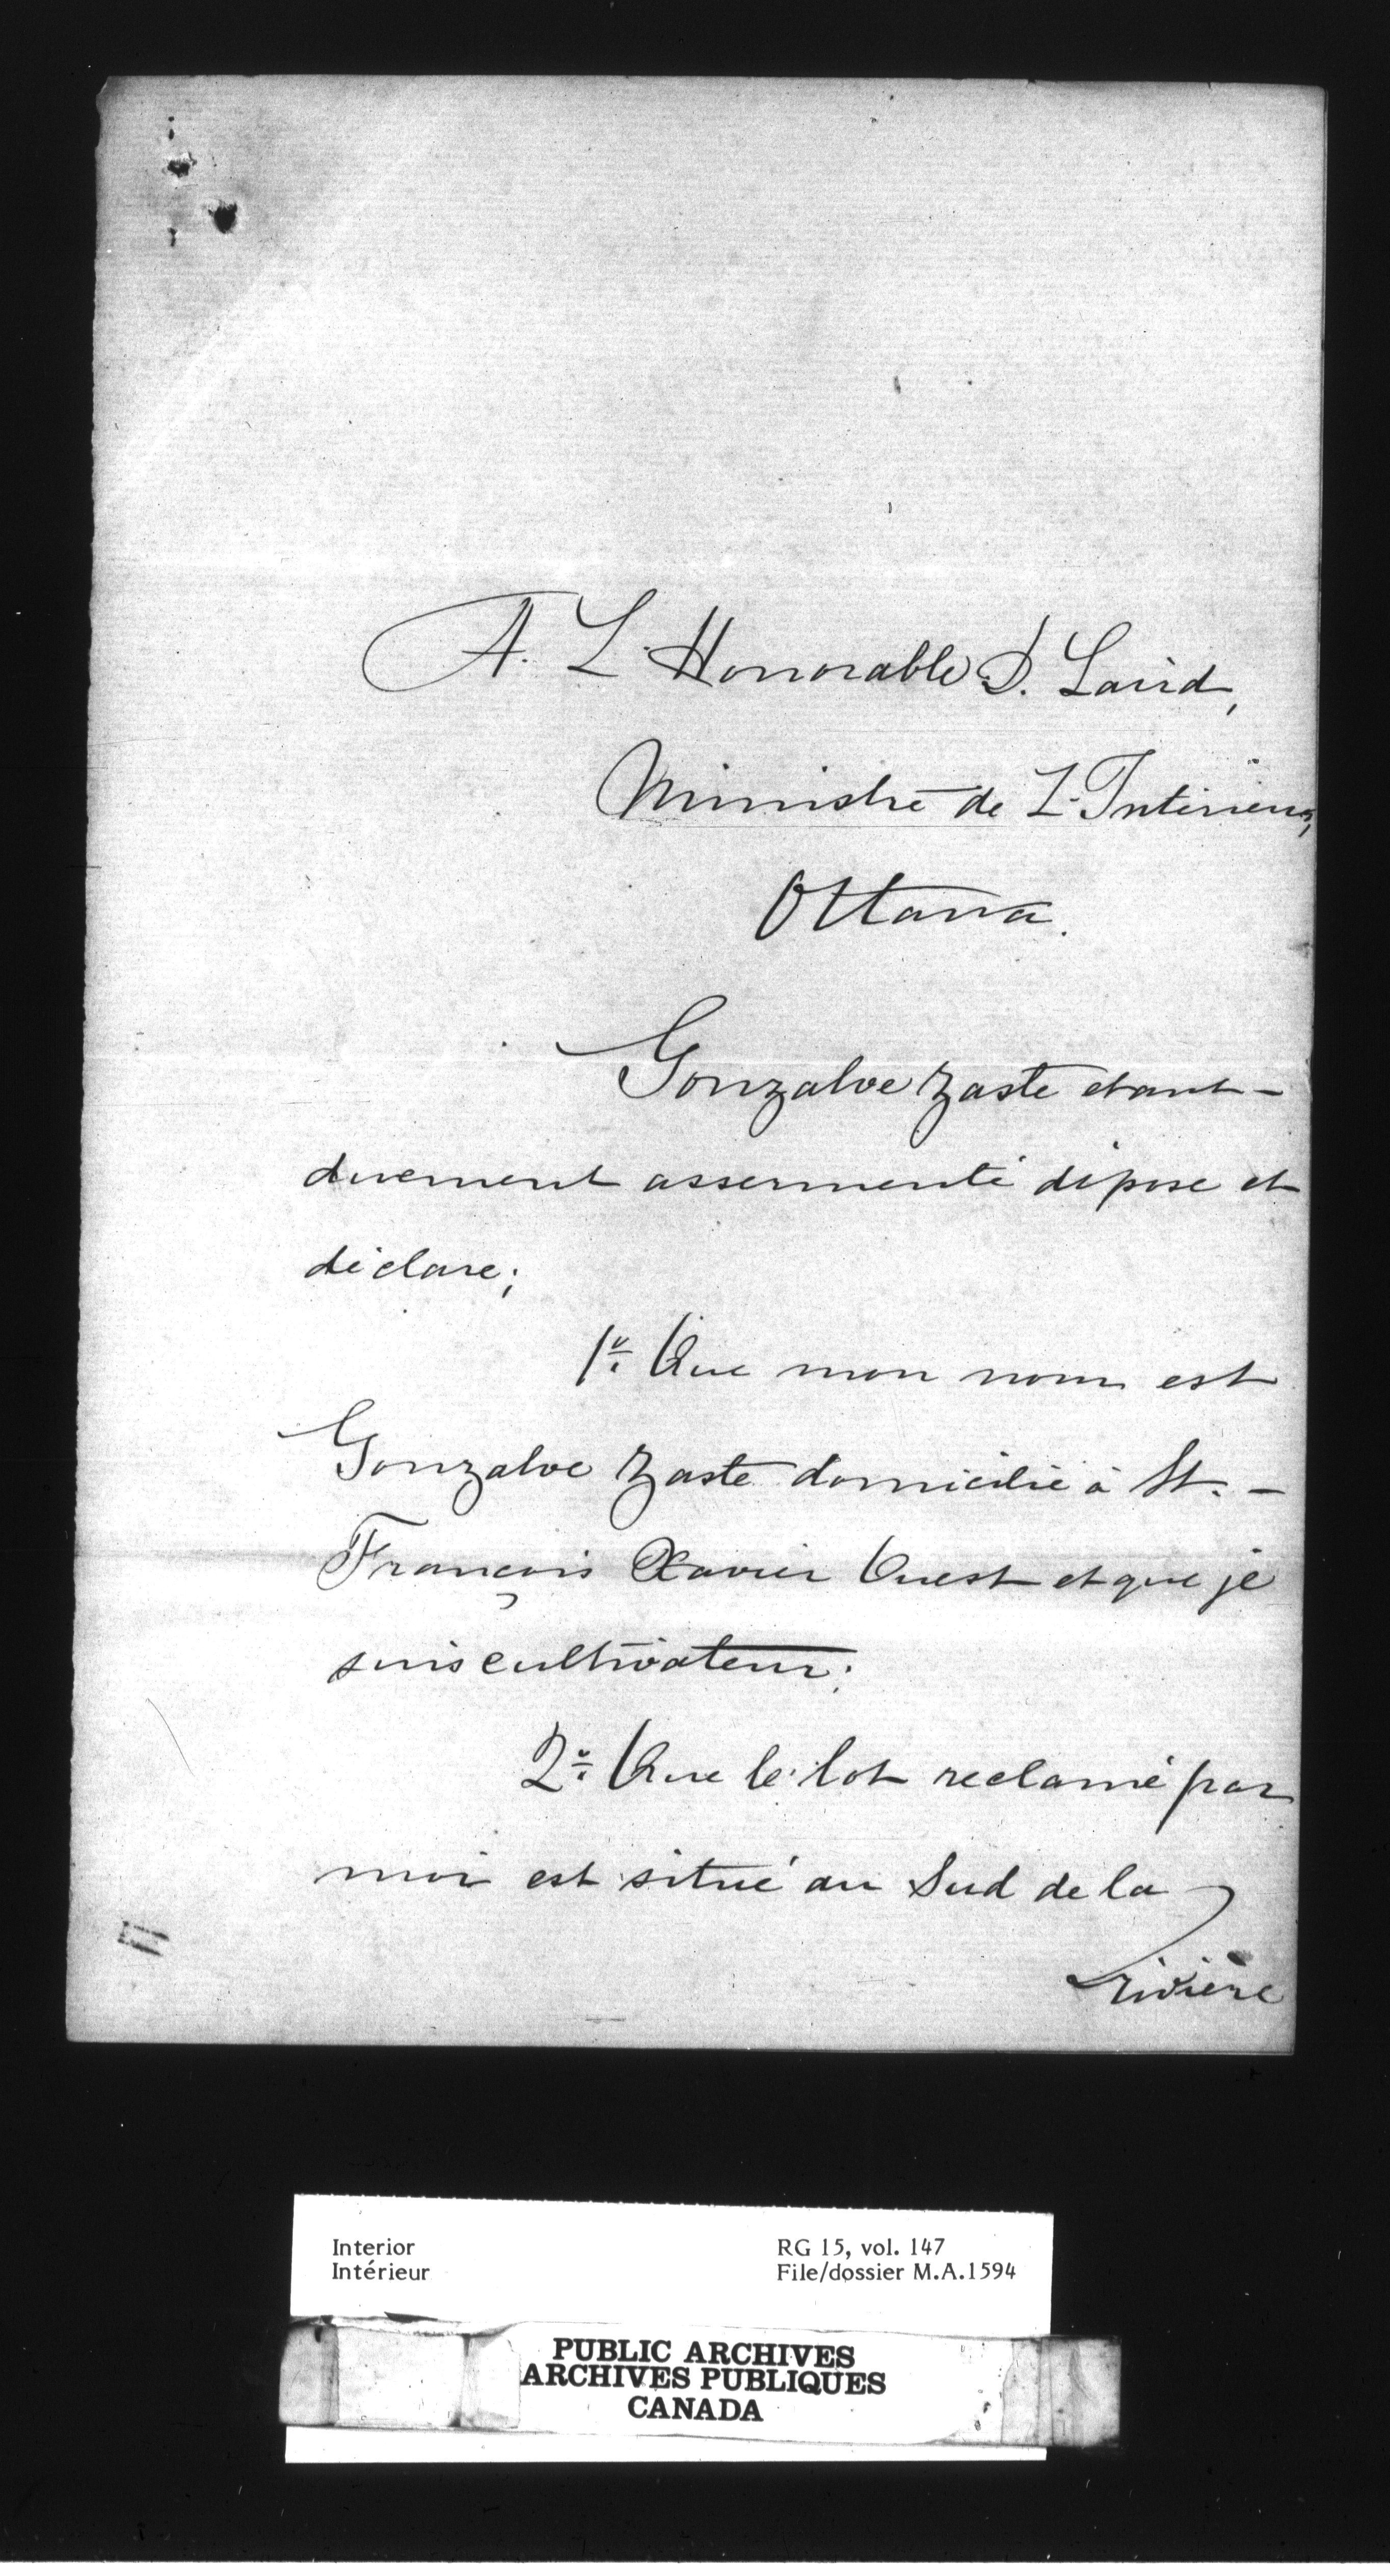 A. L'Honorable D. Laird,
Ministre de L'Intérieur,
Ottawa.
Gonzalve Zaste etant-
duement assermenté dépose et
déclare;
1º Que mon nom est
Gonzalve Zaste domicilié à St. -
François Xavier Ouest et que je
suis cultivateur;
2º Que le lot reclamé par
moi est situé au Sud de la
rivière
Interior
Intérieur
RG 15, vol. 147
File/dossier M.A.1594
PUBLIC ARCHIVES
ARCHIVES PUBLIQUES
CANADA